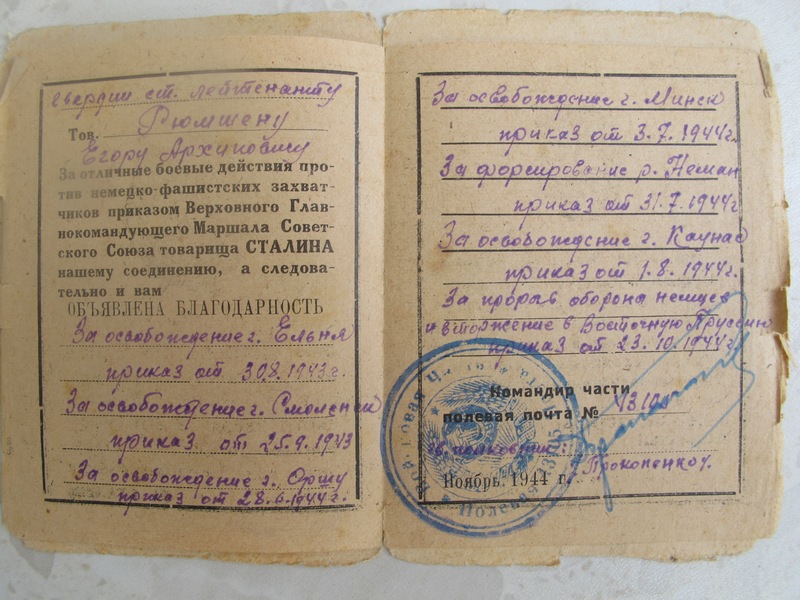 гвардии ст. лейтенанту
Тов. Рюмшену
Егору Архиповичу
За отличные боевые действия про-
тив немецко-фашистских захват-
чиков приказом Верховного Глав-
нокомандующего Маршала Совет-
ского Союза товарища СТАЛИНА
нашему соединению, а следова-
тельно и вам
ОБЪЯВЛЕНА БЛАГОДАРНОСТЬ
За освобождение г. Ельня
приказ от 30.8.1943г.
За освобождение г. Смоленск
приказ от 25.9.1943
За освобождение г. Оршу
приказ от 28.6.1944г.
За освобождение г. Минск
приказ от 3.7.1944г.
За форсирование р. Неман
приказ от 31.7.1944г
За освобождение г. Каунас
приказ от 1.8.1944г.
За прорыв оборона немцев
и вторжение в Восточную Пруссию
приказ от 23.10.1944г.
Командир части
полевая почта №
гв. полковник:
Прокопенко
Ноябрь 1944 г.
Полевая